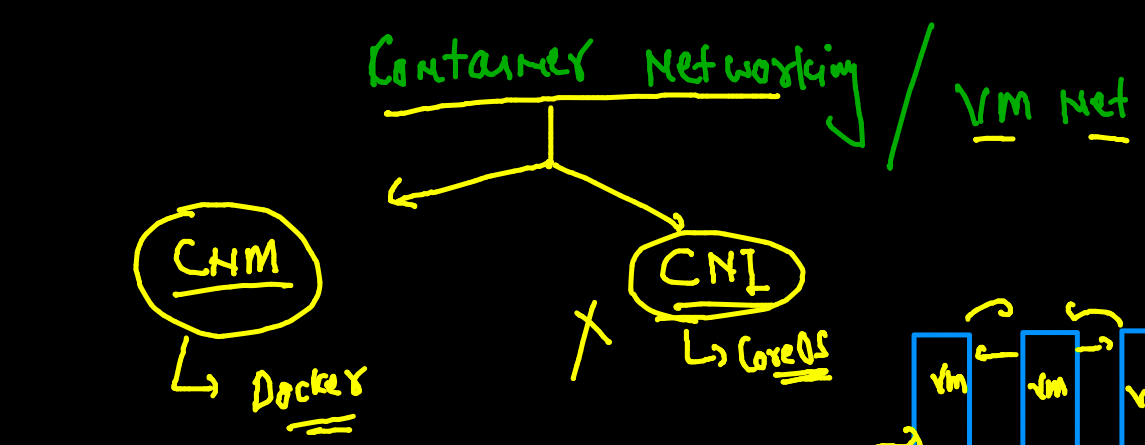 Container Networking / VM Net
CNM
CNI
Docker
CoreOS
VM
VM